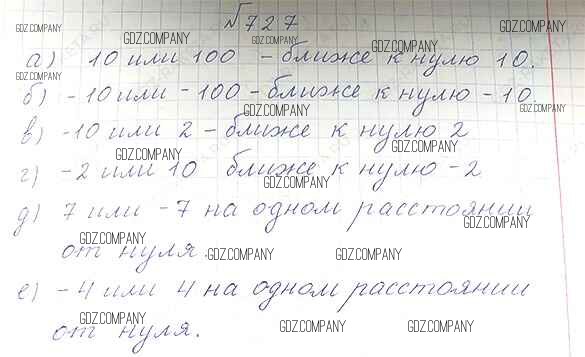 №727
GDZ.COMPANY GDZ.COMPANY GDZ.COMPANY GDZ.COMPANY
а) 10 или 100 - ближе к нулю 10.
GDZ.COMPANY
б) -10 или -100 - ближе к нулю -10
GDZ.COMPANY GDZ.COMPANY
в) -10 или 2 - ближе к нулю 2
GDZ.COMPANY
г) -2 или 10 ближе к нулю -2
GDZ.COMPANY
д) 7 или -7 на одном расстоянии
GDZ.COMPANY
от нуля.
GDZ.COMPANY GDZ.COMPANY GDZ.COMPANY
е) -4 или 4 на одном расстоянии
от нуля.
GDZ.COMPANY GDZ.COMPANY GDZ.COMPANY